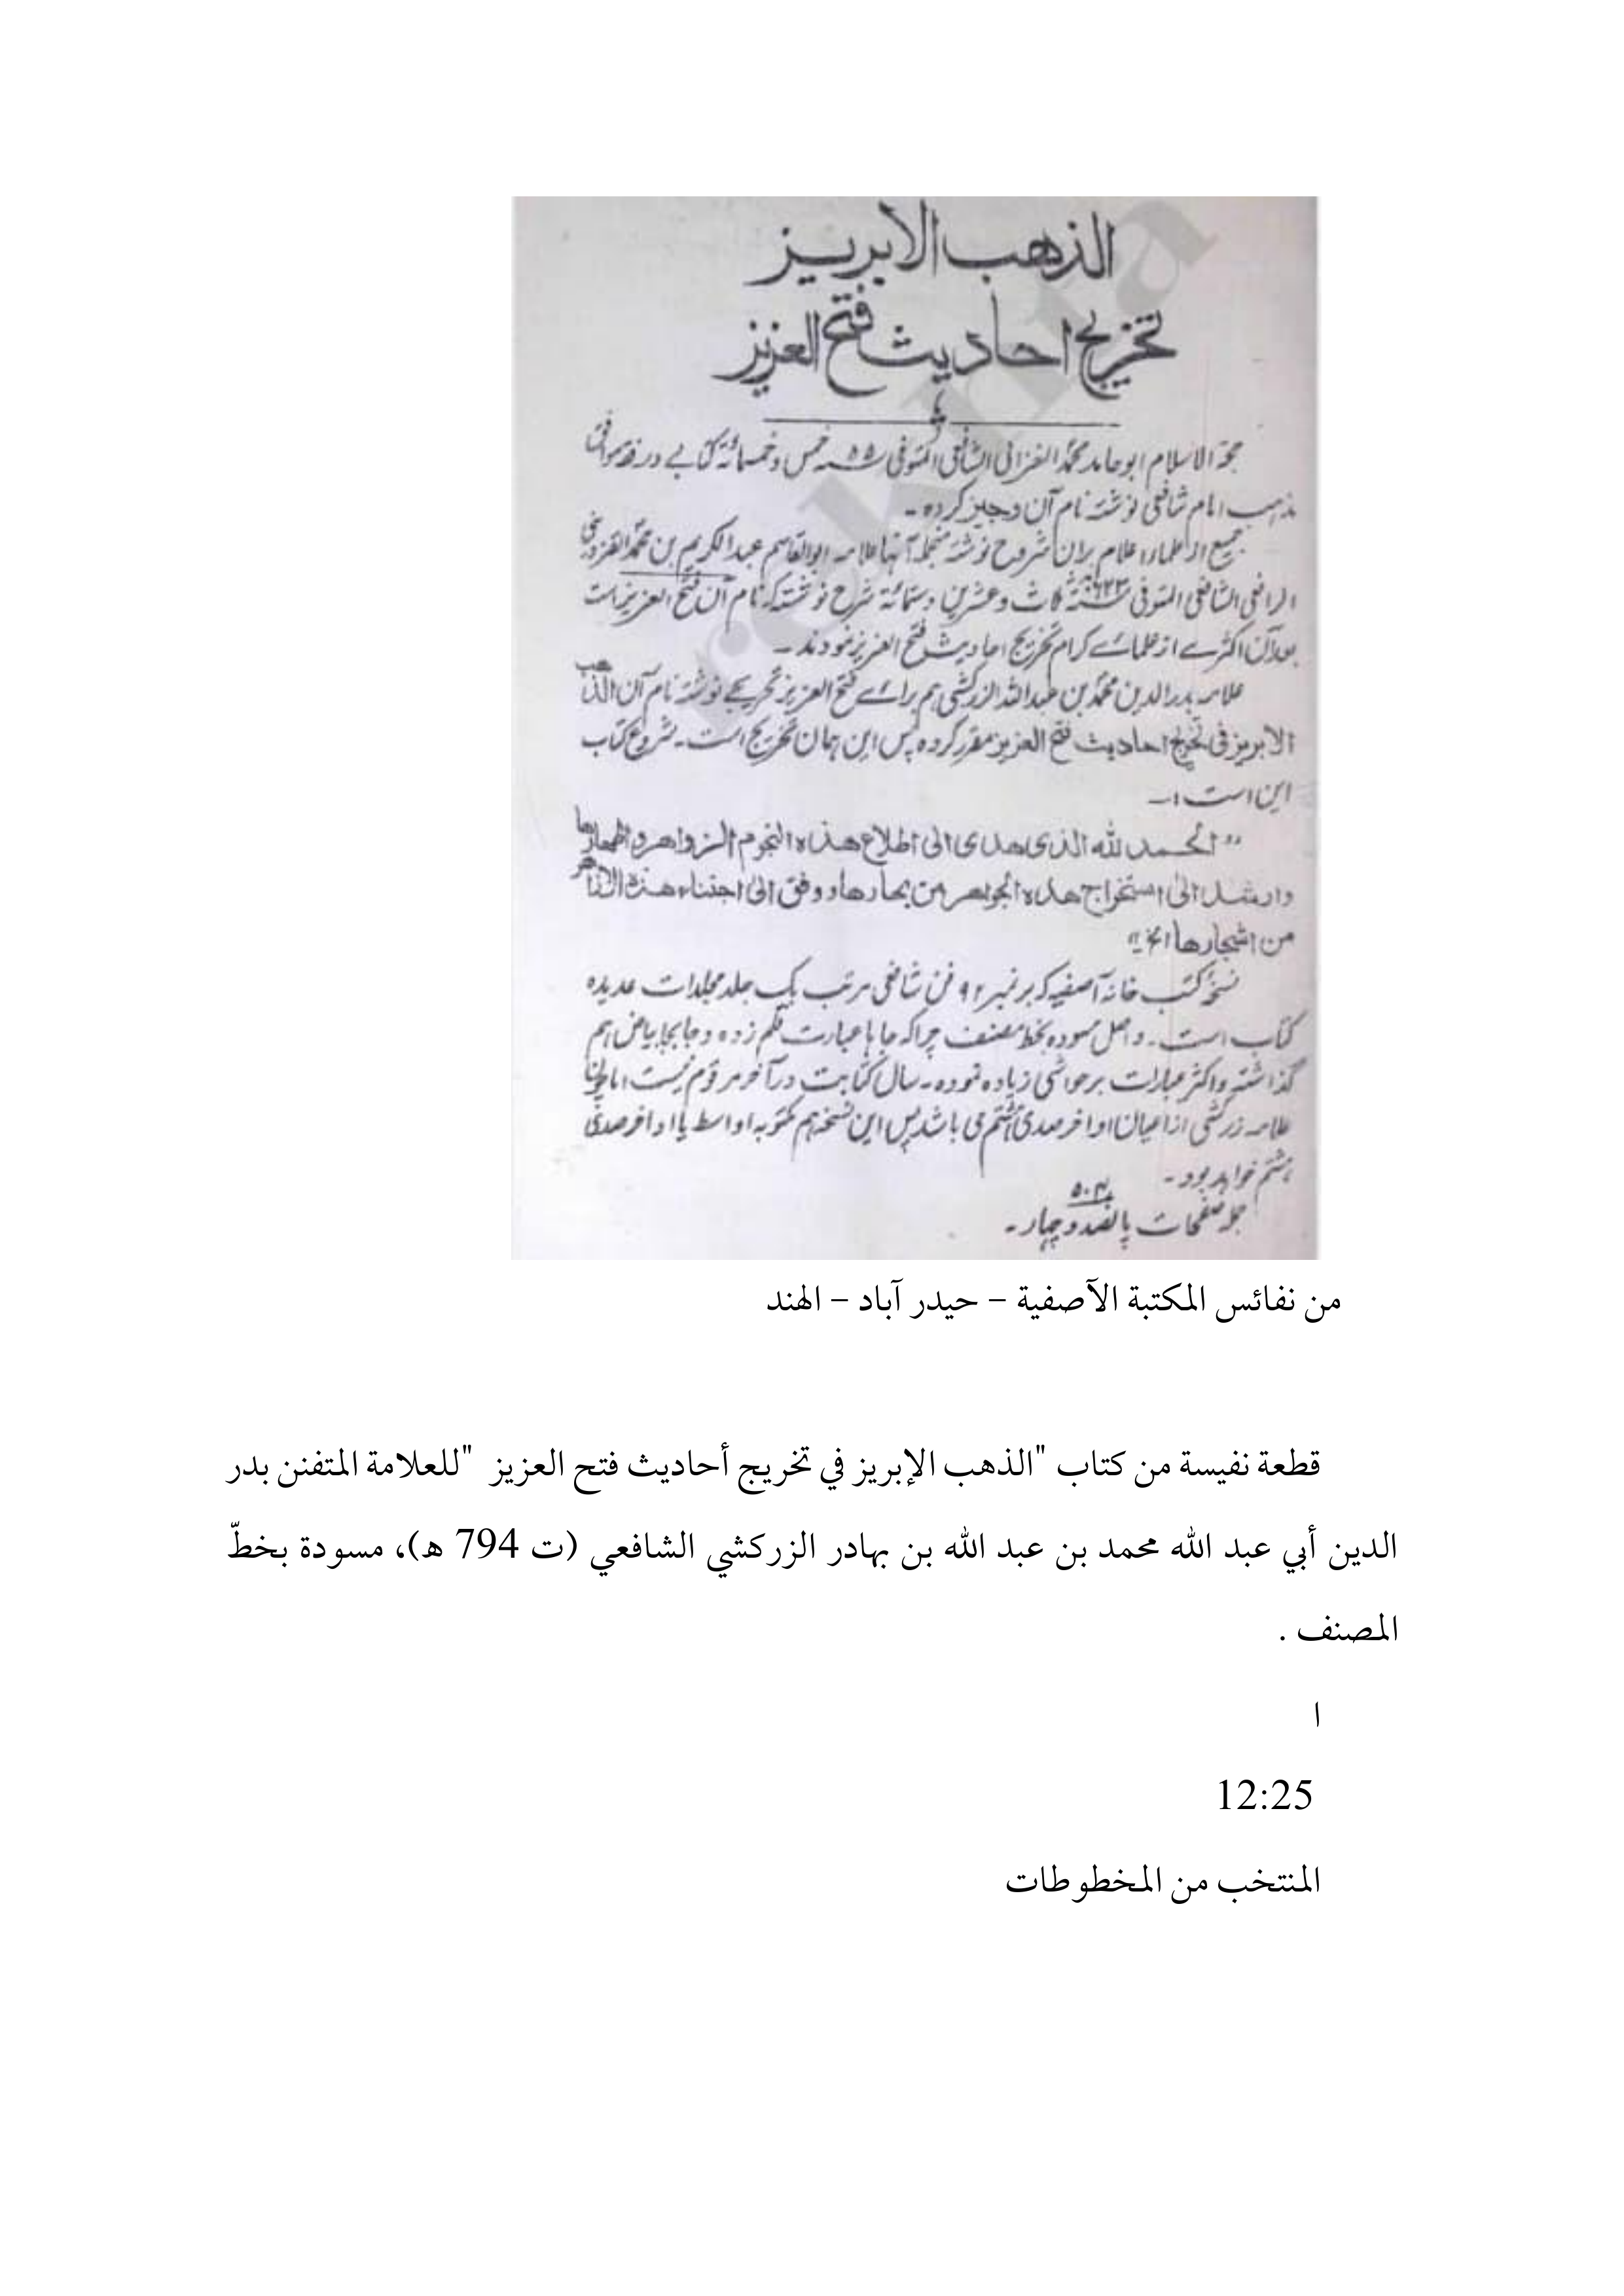 الذهب الابريز
تخريج احاديث فتح العزيز
حجة الاسلام ابو حامد محمد الغزالی الشافعی المتوفی سنہ ۵۰۵ خمس و خمسمائة کتابے در فقہ موافق
مذہب امام شافعی نوشتہ نام آن وجیز کردہ ۔
جمیع از علماء اعلام بران شروح نوشتہ منجملہ آنہا علامہ ابوالقاسم عبدالکریم بن محمد القزوینی
الرافعی الشافعی المتوفی سنہ ۶۲۳ ثلاث و عشرین و ستمائة شرح نوشتہ کہ نام آن فتح العزیز است
بعد آن اکثرے از علمائے کرام تخریج احادیث فتح العزیز نمودند ۔
علامہ بدرالدین محمد بن عبداللہ الزرکشی ہم برائے فتح العزیز تخریجے نوشتہ نام آن الذهب
الابریز فی تخریج احادیث فتح العزیز مقرر کردہ پس این ہمان تخریج است ۔ شروع کتاب
این است :۔
"الحمد لله الذى هدى الى اطلاع هذه النجوم الزواهر واظهارها
وارشد الى استخراج هذه الجواهر من بحارها ووفق الى اجتناء هذه الازاهر
من اشجارها الخ"
نسخہ کتب خانہ آصفیہ کہ بر نمبر ۹۲ فن شافعی مرتب یک جلد مجلدات عدیدہ
کتاب است ۔ و اصل مسودہ بخط مصنف چراکہ جا بجا عبارت قلم زدہ و جا بجا بیاض ہم
گذاشتہ و اکثر عبارات بر حواشی زیادہ نمودہ ۔ سال کتابت در آخر مرقوم نیست اما چون
علامہ زرکشی از اعیان اواخر صدی ہشتم می باشد پس این نسخہ ہم مکتوبہ اواسط یا اواخر صدی
ہشتم خواہد بود ۔
۵۰۴
جملہ صفحات پانصد و چہار ۔
من نفائس المكتبة الآصفية – حيدر آباد – الهند
قطعة نفيسة من كتاب "الذهب الإبريز في تخريج أحاديث فتح العزيز "للعلامة المتفنن بدر
الدين أبي عبد الله محمد بن عبد الله بن بهادر الزركشي الشافعي (ت 794 ه)، مسودة بخطّ
المصنف .
ا
12:25
المنتخب من المخطوطات